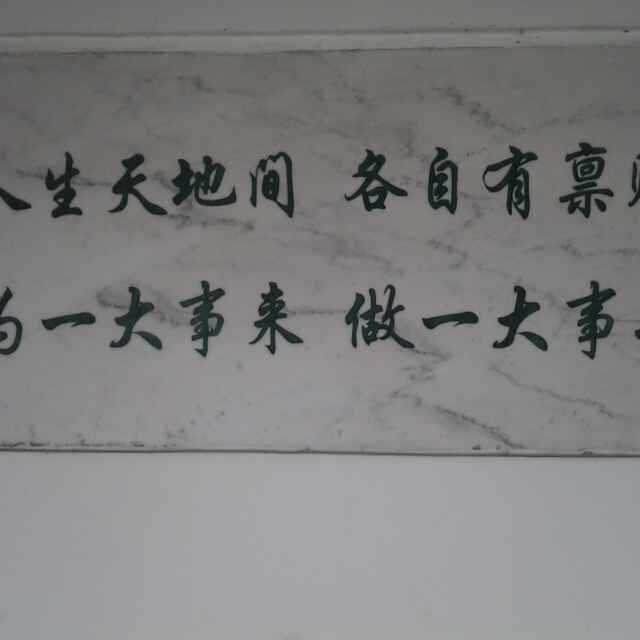 人生天地间 各自有禀
为一大事来 做一大事